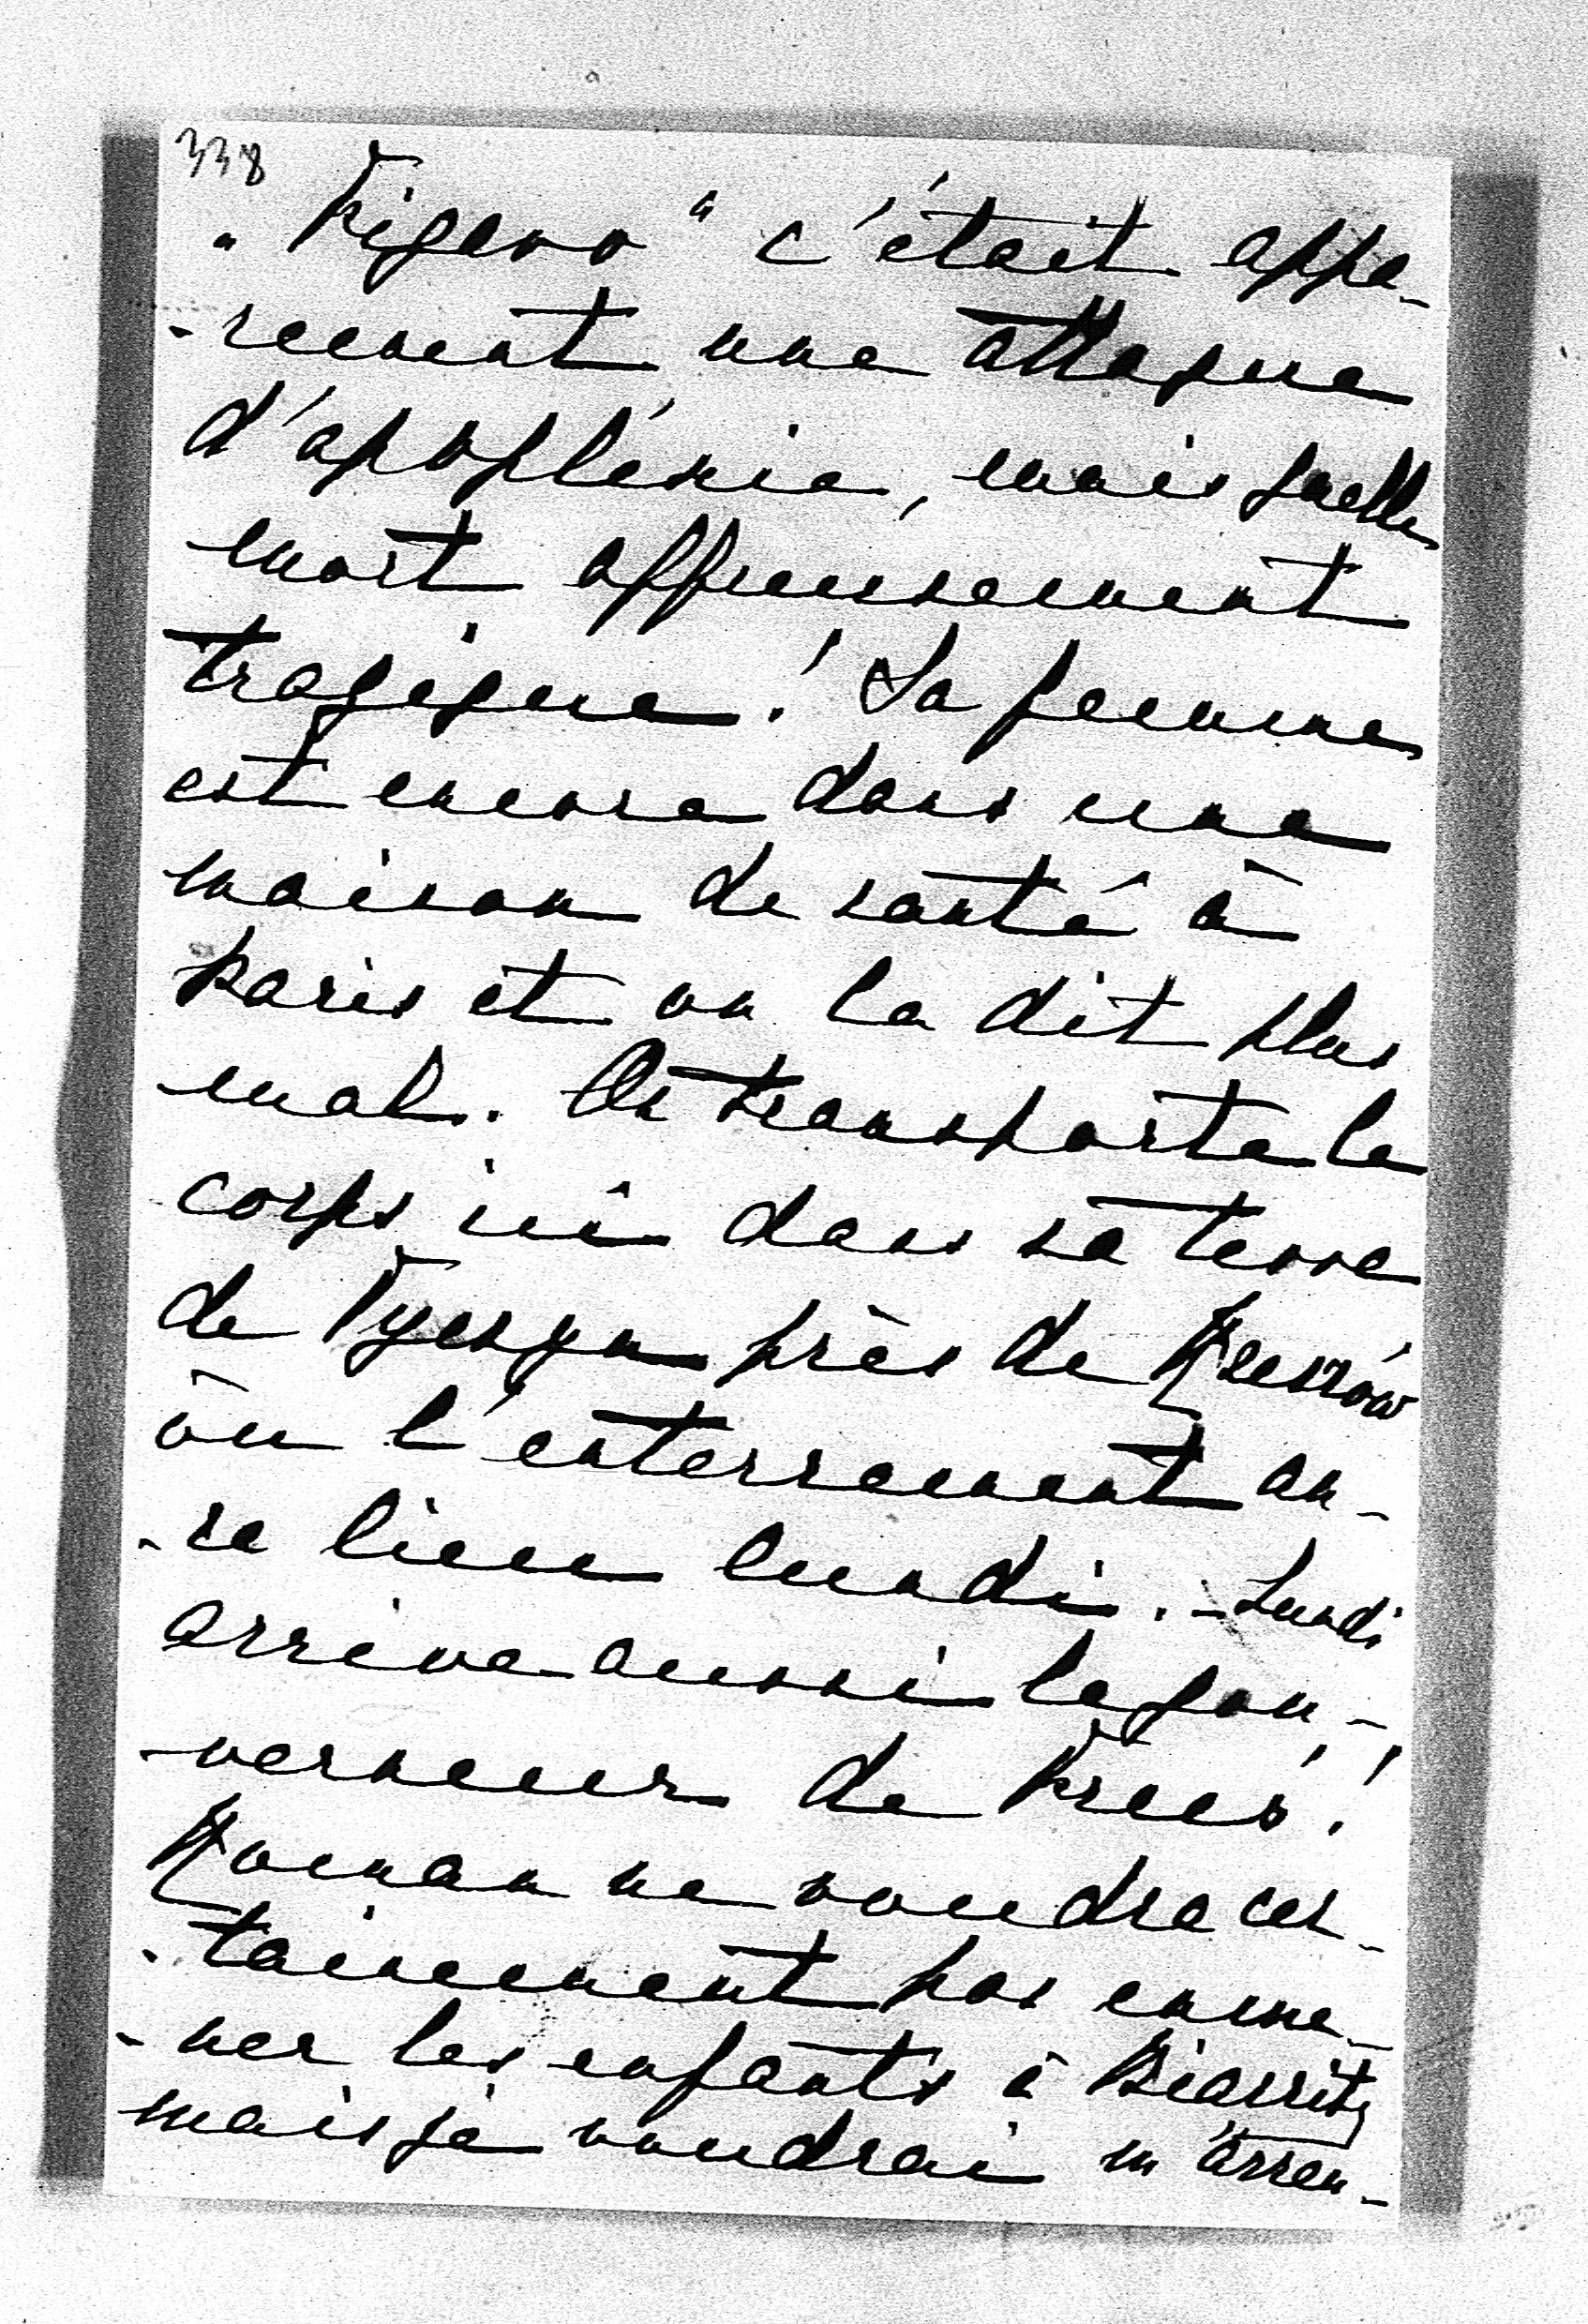 338
„Figaro" c'était appa-
-remment une attaque
d'apopléxie, mais quelle
mort affreusement
tragique! Sa femme
est encore dans une
maison de santé à
Paris et on la dit plus
mal. On transporte le
corps ici dans sa terre
de Tyczyn près de Rzeszów
òu l'enterrement au-
-ra lieu lundi. - Lundi
arrive aussi le gou-
-verneur de Pless!
Roman ne voudra cer-
-tainement pas emme-
-ner les enfants à Biarritz
mais je voudrai m'arran-